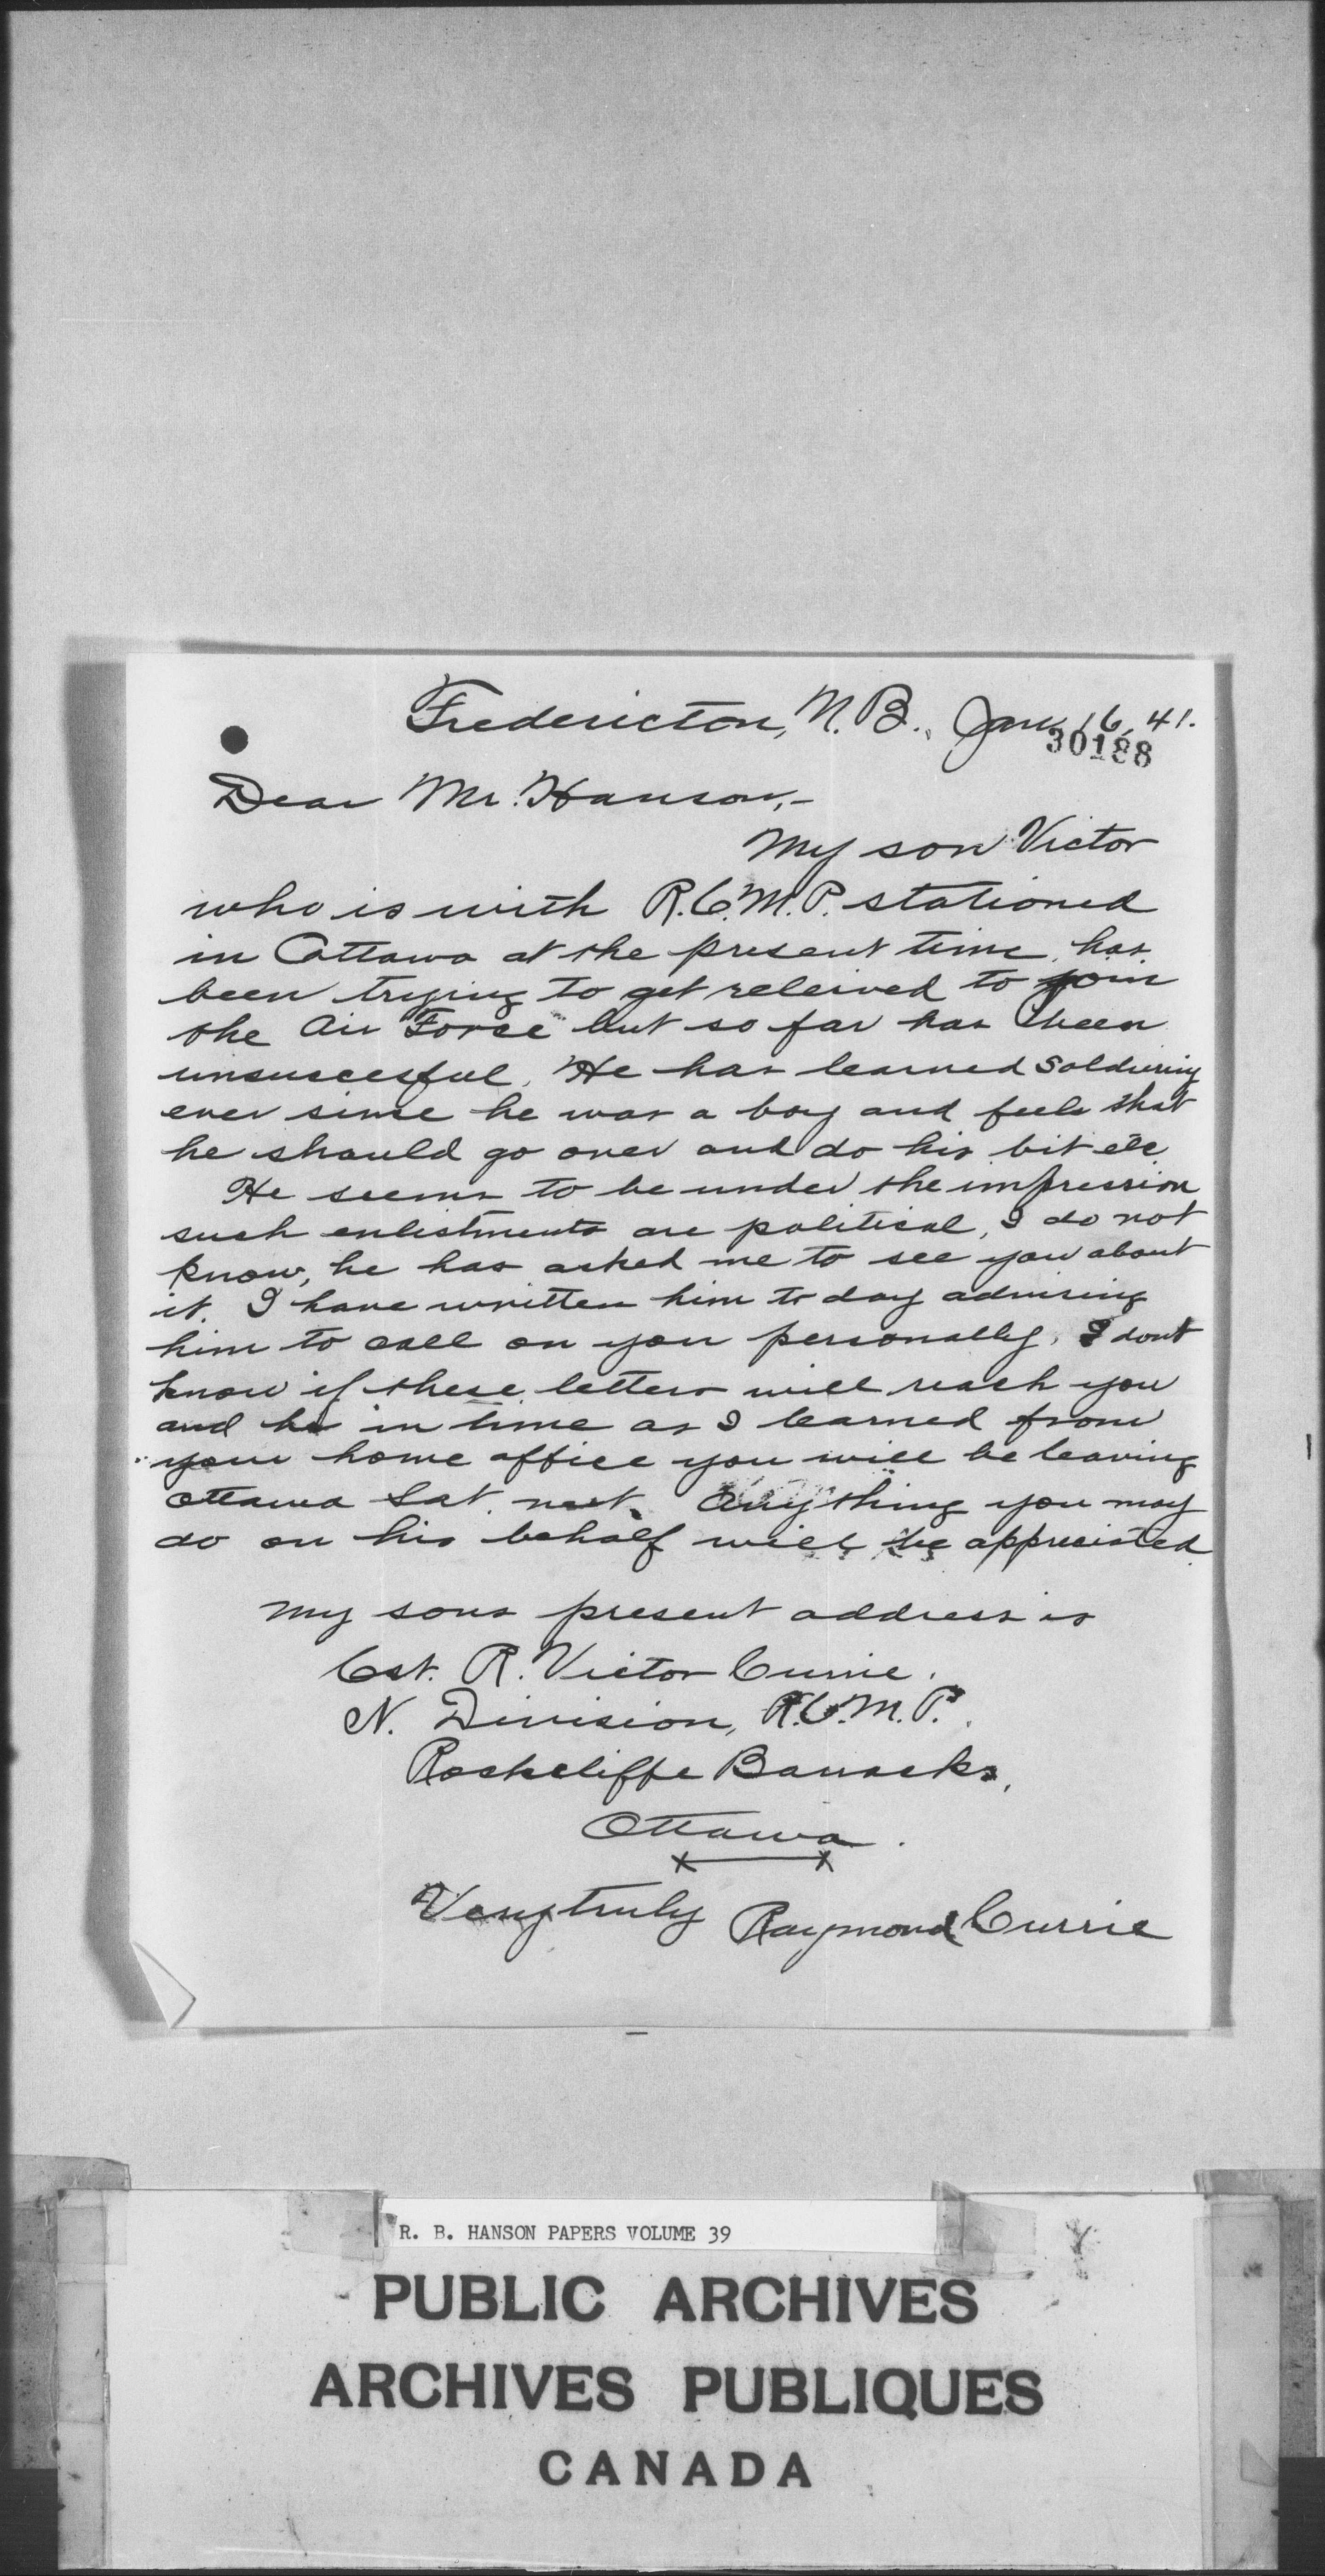 Fredericton, N.B., Jan. 16, 41.
30188
Dear Mr. Hanson,-
My son Victor
who is with R.C.M.P. stationed
in Ottawa at the present time has
been trying to get releived to join
the Air Force but so far has been
unsuccesful. He has learned Soldiering
ever since he was a boy and feels that
he should go over and do his bit etc.
He seems to be under the impression
such enlistments are political, I do not
know, he has asked me to see you about
it. I have written him to day advising
him to call on you personally, I dont
know if these letters will reach you
and he in time as I learned from
your home office you will be leaving
Ottawa Sat. next. Anything you may
do on his behalf will be appreciated.
My sons present address is
Cst. R. Victor Currie.
N. Division, R.C.M.P.
Rockcliffe Barracks,
Ottawa.
Very truly Raymond Currie
R. B. HANSON PAPERS VOLUME 39
PUBLIC ARCHIVES
ARCHIVES PUBLIQUES
CANADA